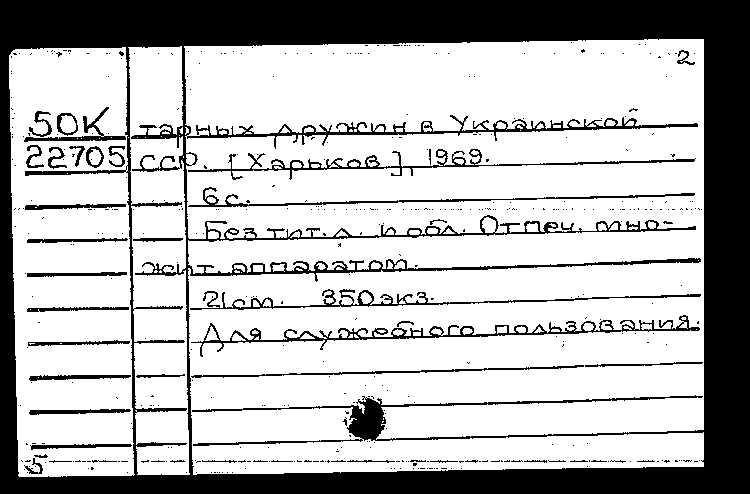 2
50К тарных дружин в Украинской
22705 ССР. [Харьков], 1969.
6 с.
Без тит. л. и обл. Отпеч. мно-
жит. аппаратом.
21 см. 350 экз.
Для служебного пользования.
5